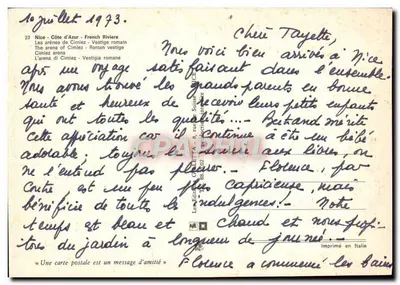 10 juillet 1973.
22 Nice - Côte d'Azur - French Riviera
Les arènes de Cimiez - Vestige romain
The arena of Cimiez - Roman vestige
Cimiez arena
L'arena di Cimiez - Vestigia romane
Chère Tayette,
Nous voici bien arrivés à Nice
après un voyage satisfaisant dans l'ensemble.
Nous avons trouvé les grands parents en bonne
santé et heureux de recevoir leurs petits enfants
qui ont toutes les qualités... Bertrand mérite
cette appréciation car il continue à être un bébé
adorable; toujours le sourire aux lèvres, on
ne l'entend pas pleurer. Florence, par
contre est un peu plus capricieuse, mais
bénéficie de toutes les indulgences. Notre
temps est beau et chaud et nous profi-
tons du jardin à longueur de journée.
imprimé en Italie
"Une carte postale est un message d'amitié"
Florence a commencé les bains